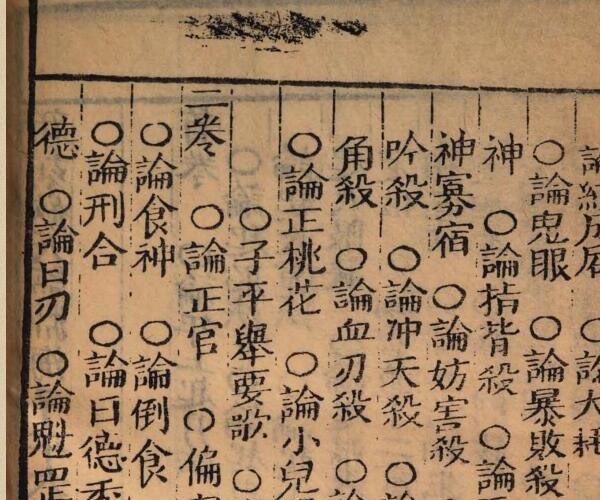 ○論大耗
○論鬼眼 ○論暴敗殺
神 ○論指背殺 ○論
神寡宿 ○論妨害殺
吟殺 ○論冲天殺 ○
角殺 ○論血刃殺 ○
○論正桃花 ○論小兒
○子平舉要歌 ○
二卷 ○論正官 ○偏
○論食神 ○論倒食
○論刑合 ○論日德秀
德 ○論日刃 ○論魁罡